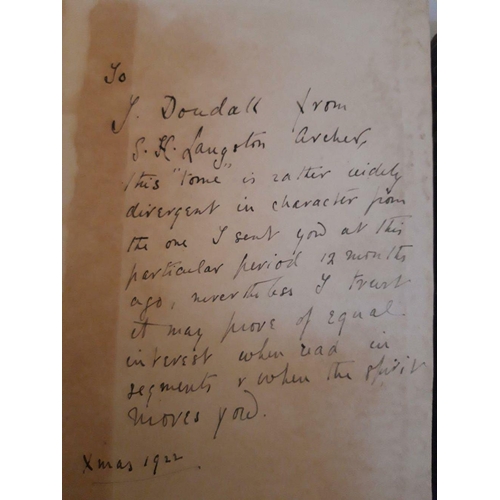 To
J. Dondall from
S. H. Langston Archer,
this "tome" is rather widely
divergent in character from
the one I sent you at this
particular period 12 months
ago, nevertheless I trust
it may prove of equal
interest when read in
segments & when the spirit
moves you.
Xmas 1922.